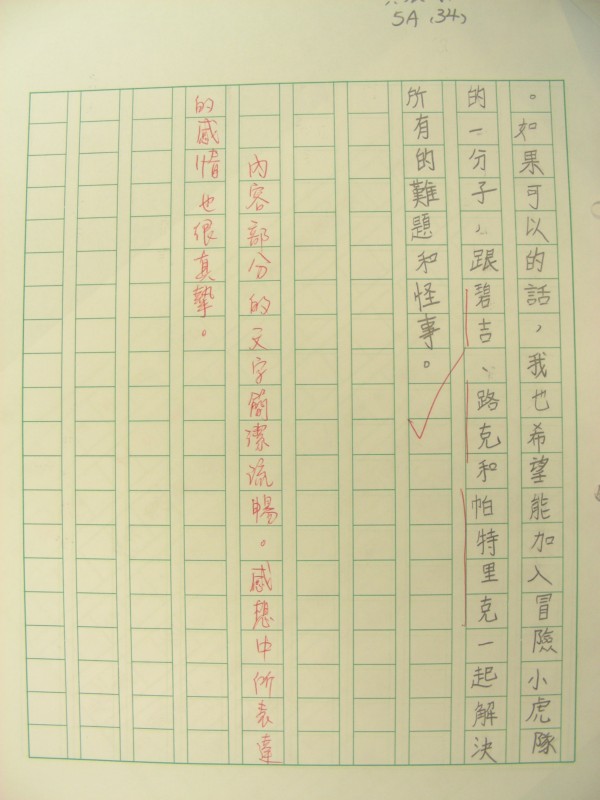 5A (34)
。如果可以的話，我也希望能加入冒險小虎隊
的一分子，跟碧吉、路克和帕特里克一起解決
所有的難題和怪事。
內容部分的文字簡潔流暢。感想中所表達
的感情也很真摯。